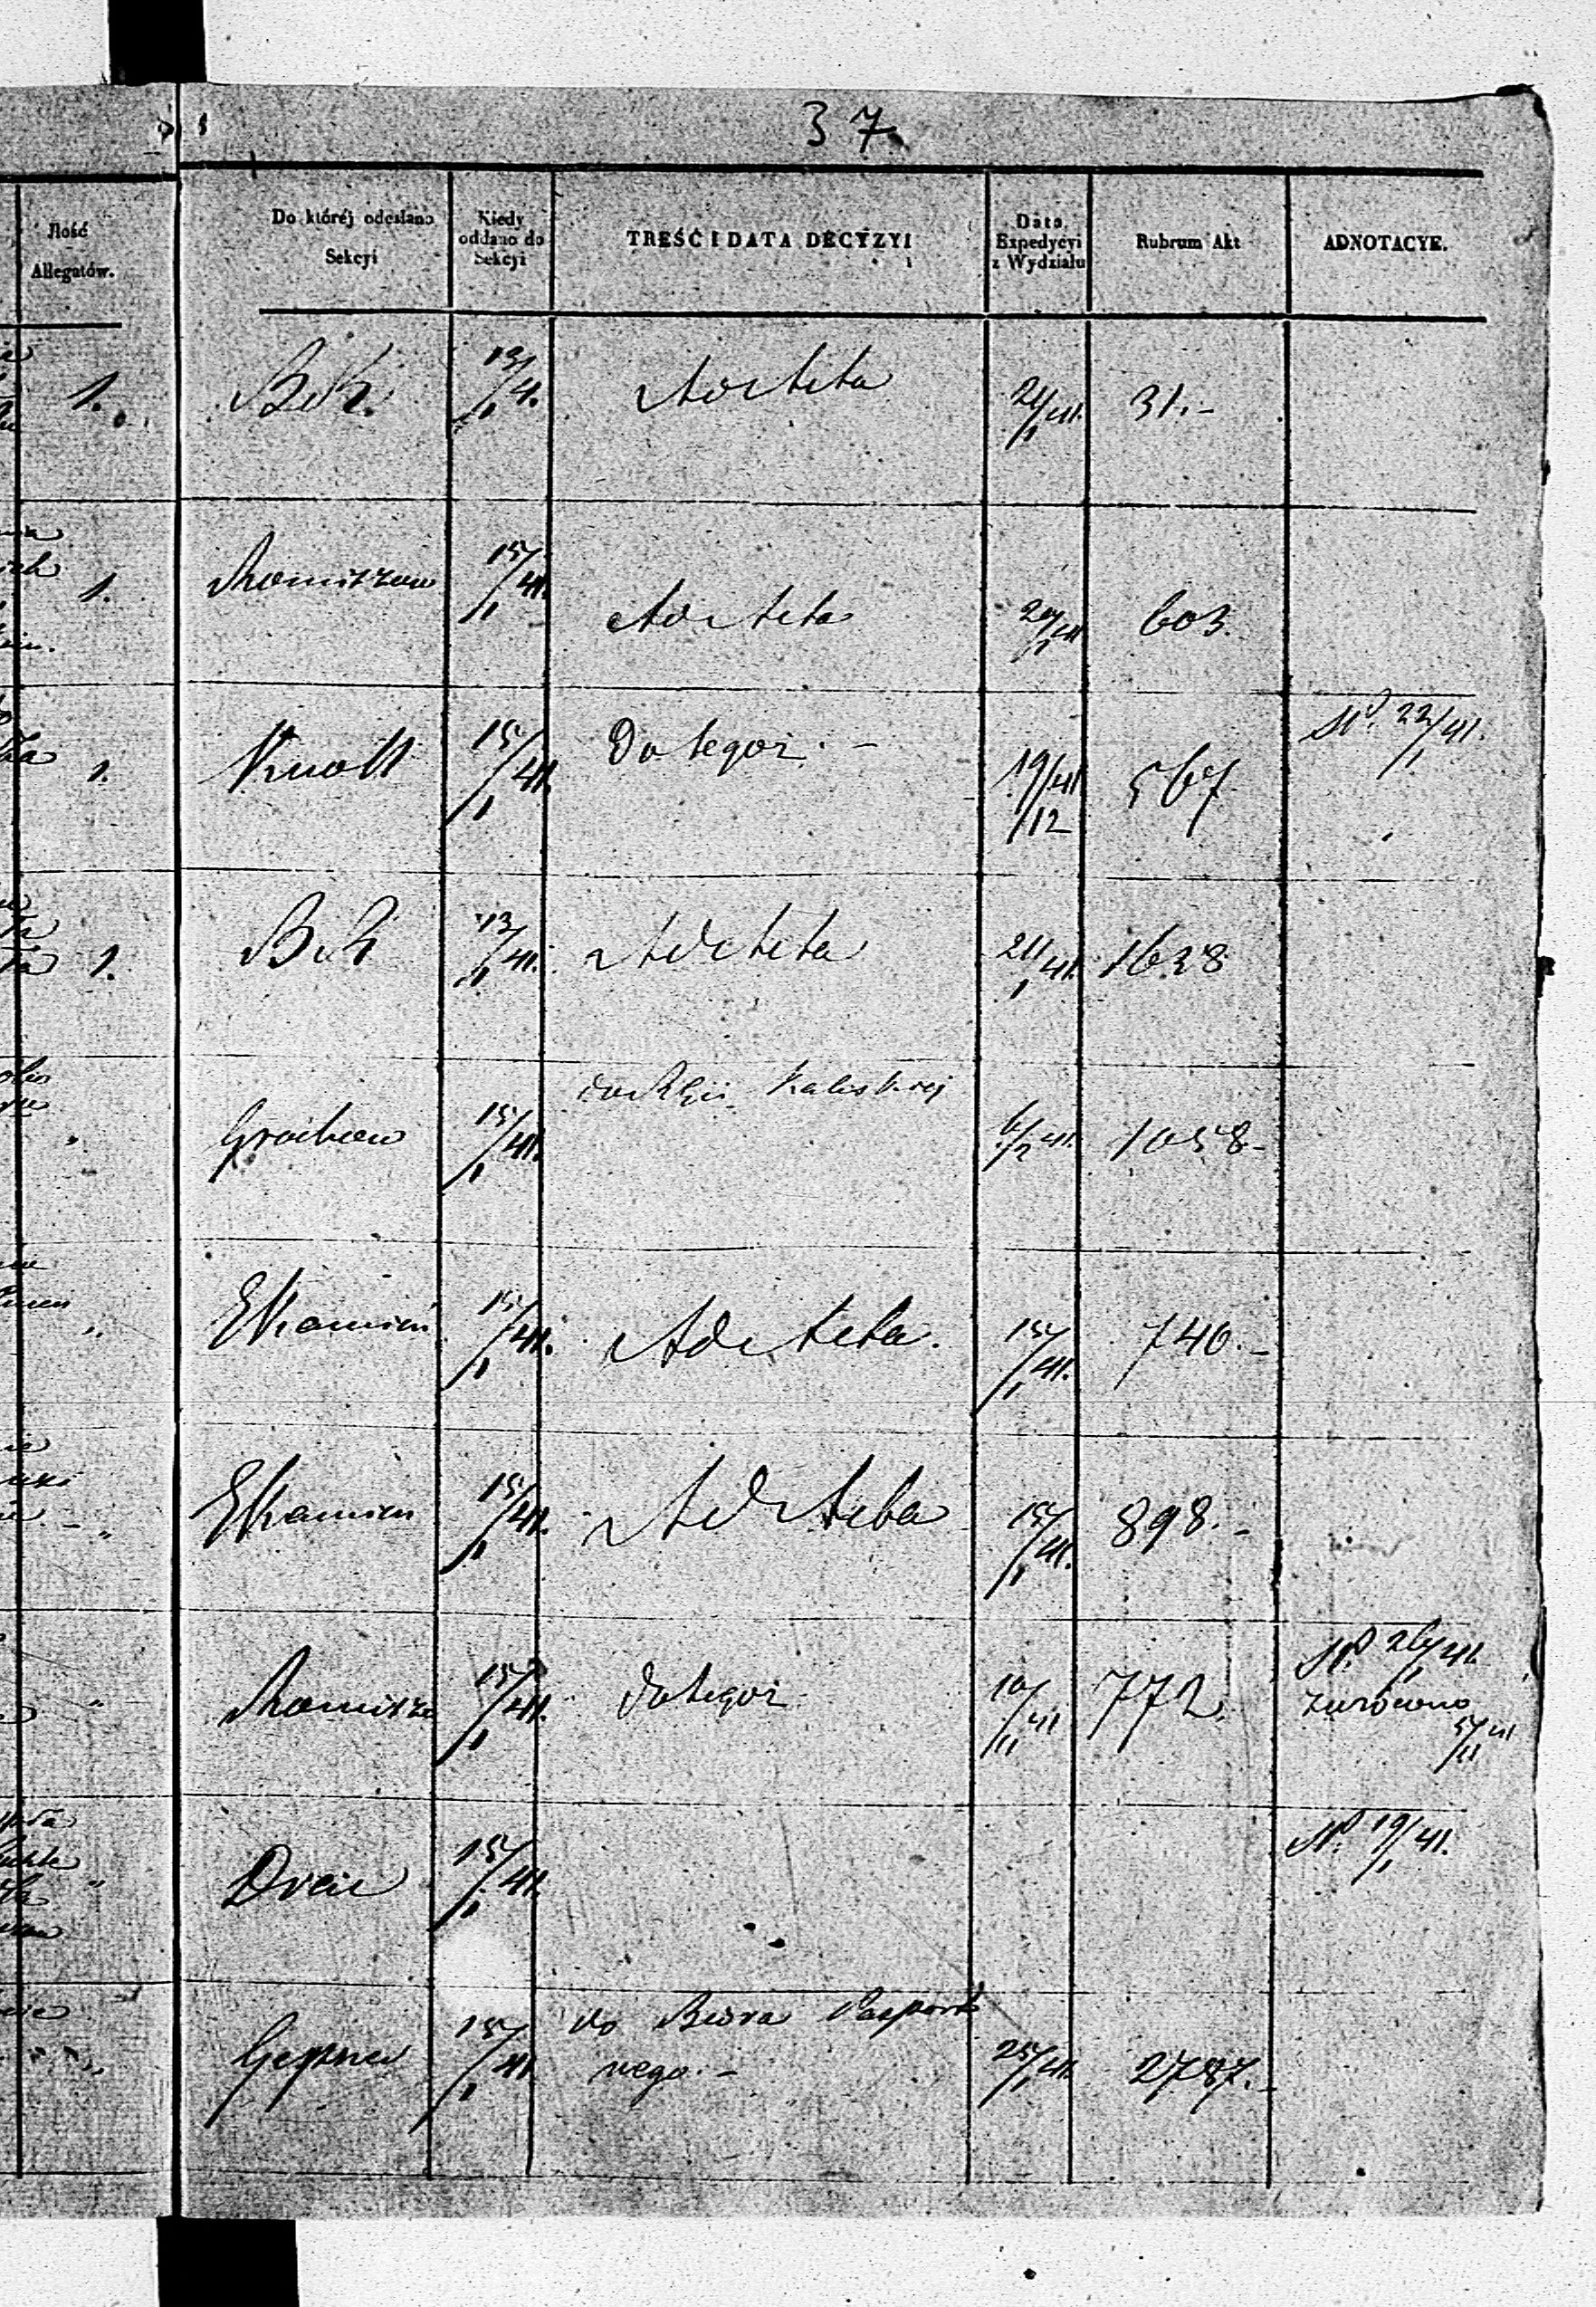 37
Ilość
Allegatów.
Do któréj odesłano
Sekcyi
Kiedy
oddano do
Sekcyi
TREŚĆ I DATA DECYZYI
Data
Expedycyi
z Wydziału
Rubrum Akt
ADNOTACYE.
1. B.R. 13/1 4. Ad Acta 21/1 41. 31.-
1. 15/1 41. Ad Acta 20/1 41 603.
1. Knoll 15/1 41. Do tegoż.- 19/12 41 567 22/1 41.
1. B.R 13/1 41. Ad Acta 21/1 41. 1638
" 15/1 41. do Rządu Kaliskiej 6/2 41. 1058-
" EKamień 15/1 41. Ad Acta. 15/1 41. 740.-
" EKamien 15/1 41. Ad Acta 15/1 41. 898.-
" 15/1 41. do tegoż 10/11 41 772. 26/1 41.
zwrócono
5/11 41
" 15/1 41. 19/1 41.
" Gepner 15/1 41. do Biora Paszport
wego.- 25/1 41. 2787.-